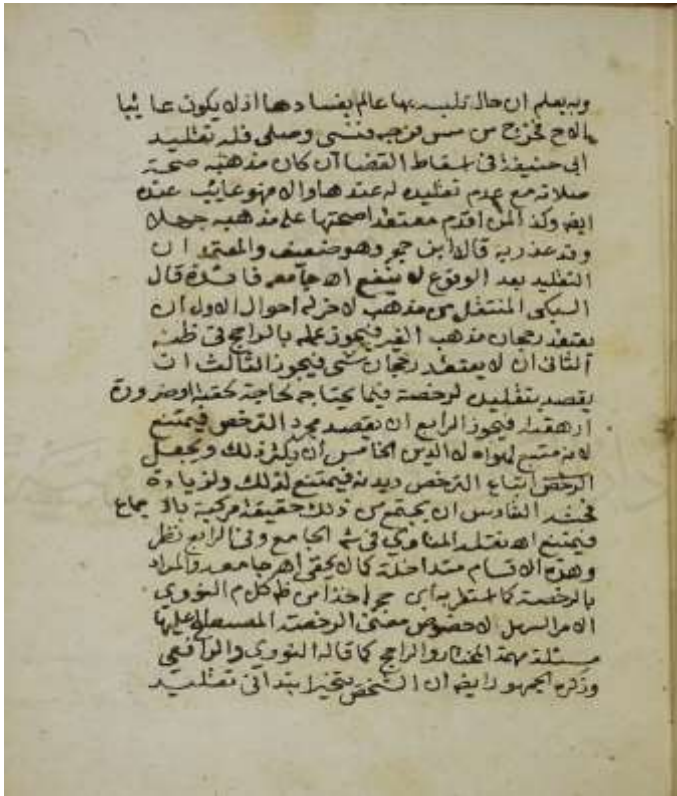 وبه يعلم ان حال تلبسه بها عالم بفسادها اذ لا يكون عابثا
الا ح فخرج من مس فرجه فنسى وصلى فله تقليد
ابى حنيفة فى اسقاط القضا ان كان مذهبه صحة
صلاته مع عدم تقليده له عندها والا فهو عابث عنده
ايضا وكذا لمن اقدم معتقدا صحتها على مذهبه جهلا
وقد عذر به قاله ابن حجر وهو ضعيف والمعتمد ان
التقليد بعد الوقوع لا ينفع اه جامعه فائدة قال
السبكى المنتقل من مذهب لاخر له احوال الاول ان
يعتقد رجحان مذهب الغير فيجوز عمله بالراجح فى ظنه
الثانى ان لا يعتقد رجحان شى فيجوز الثالث ان
يقصد بتقليده لرخصة فيما يحتاجه لحاجة لحقته او ضرورة
ارهقته فيجوز الرابع ان يقصد مجرد الترخص فيمتنع
لانه متبع لهواه لا للدين الخامس ان يكثر ذلك ويجعل
اتباع الترخص ديدنه فيمتنع لذلك ولزيادة
فحشه السادس ان يجتمع من ذلك حقيقة مركبة بالاجماع
فيمتنع اه نقله المناوى فى شرح الجامع وفى الرابع نظر
وهذه الاقسام متداخلة كما لا يخفى اه جامعه والمراد
بالرخصة كما استقر به ابن حجر اخذا من كلام النووى
الامر السهل لا خصوص معنى الرخصة المصطلح عليها
مسئلة مهمة المختار والراجح كما قاله النووى والرافعى
وذكره الجمهور ايضا ان الشخص يتخير ابتدا فى تقليد